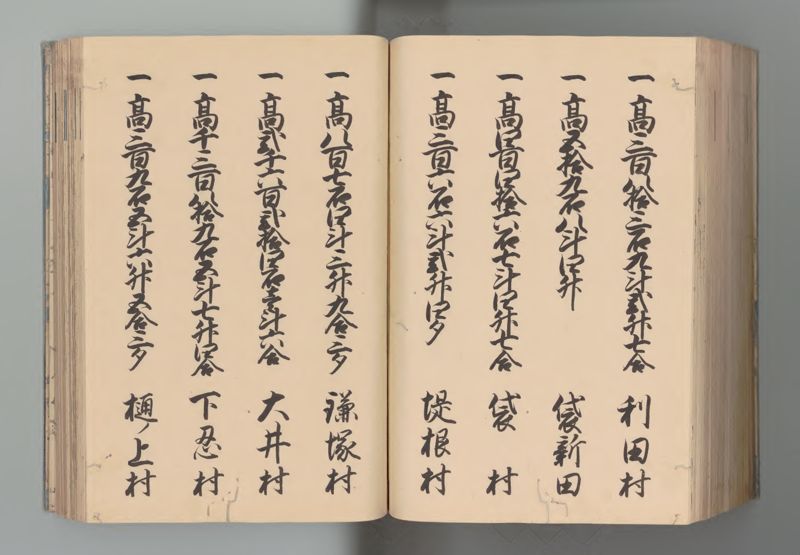 一高三百八拾三石九斗弐升七合 利田村
一高五拾九石八斗四升 袋新田
一高四百四拾六石七斗四升七合 袋村
一高三百六石六斗弐升四夕 堤根村
一高八百七石四斗三升九合三夕 鎌塚村
一高弐千六百弐拾四石壱斗六合 大井村
一高千三百八拾九石五斗七升四合 下忍村
一高三百九石五斗六升五合三夕 樋ノ上村